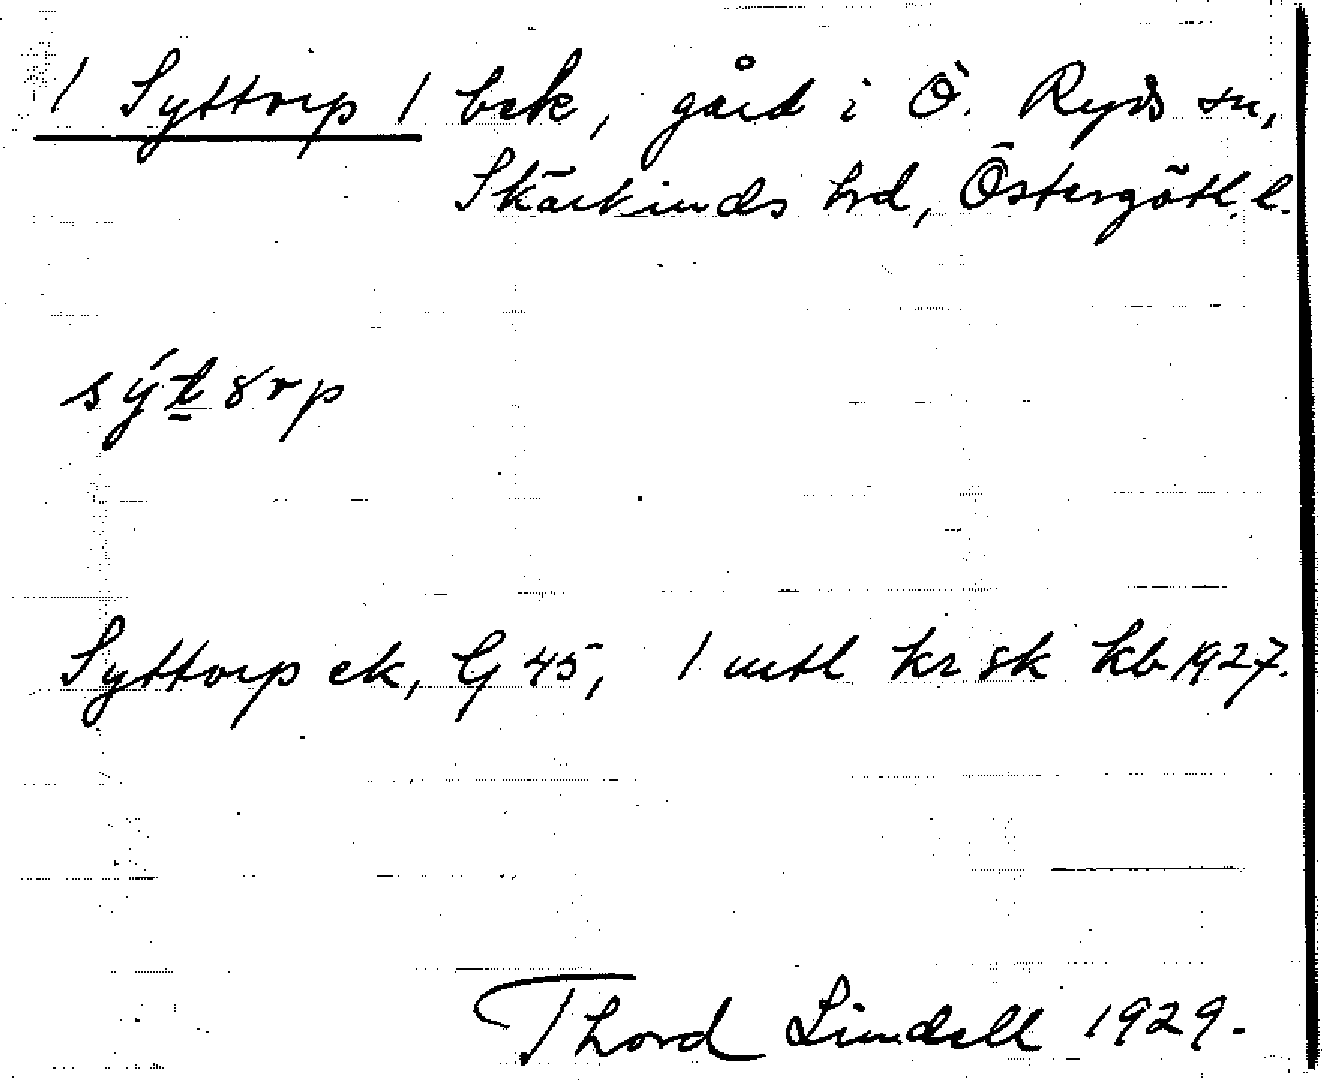 / Syttorp / bek, gård i Ö. Ryds sn,
Skärkinds hrd, Östergötl. l.
sýt̲ȣrp
Syttorp ek, G 45, 1 mtl kr sk kb 1927.
Thord Lindell 1929.